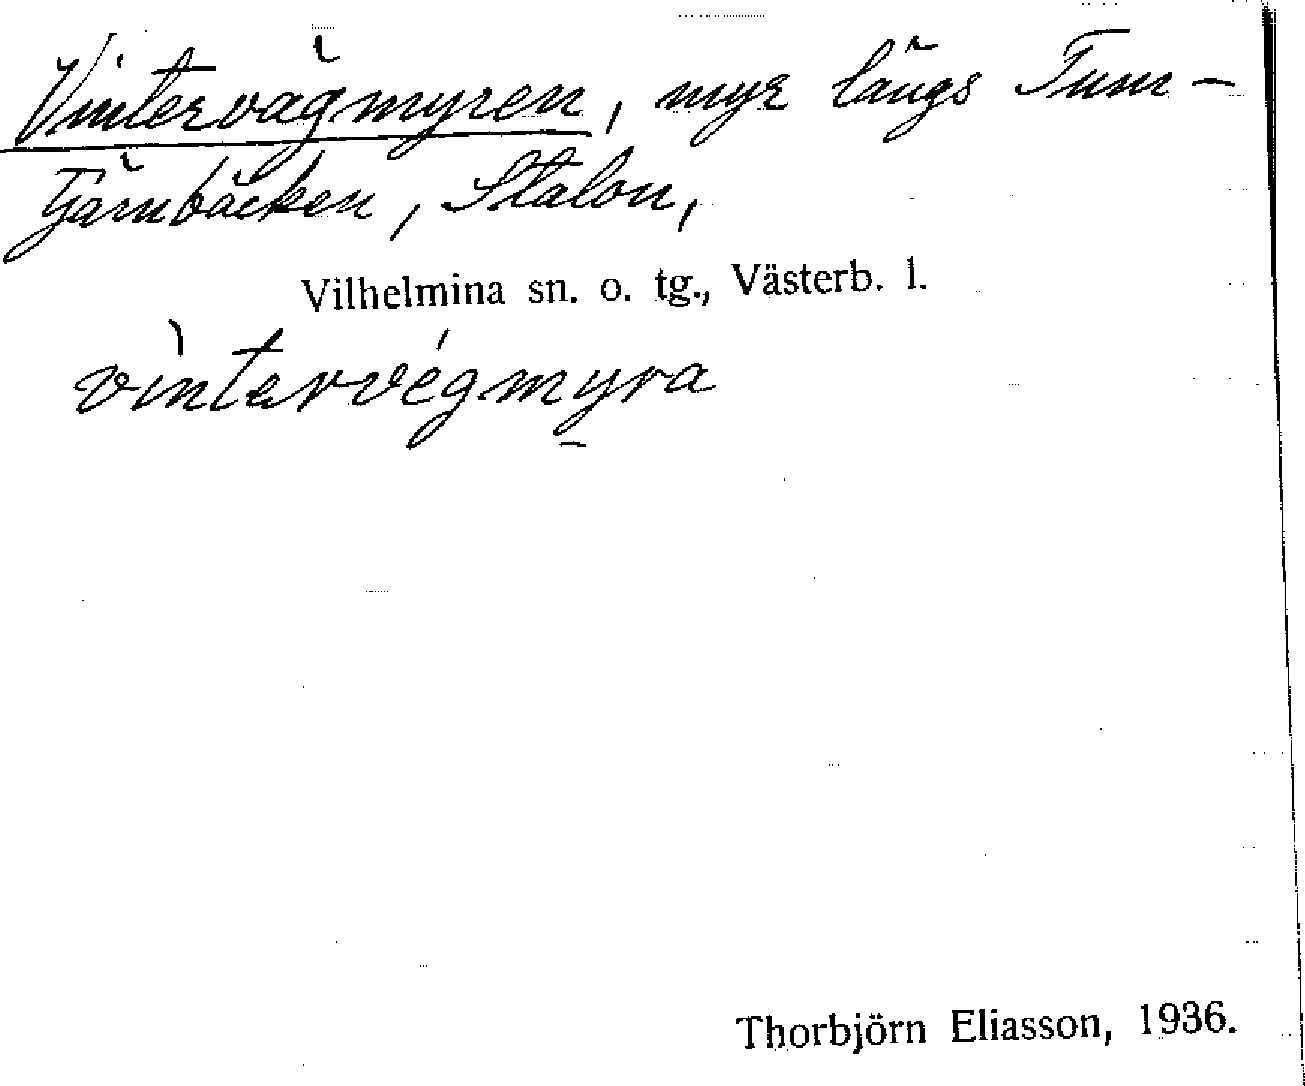 Vintervägmyren, myr längs Tum-
Tjärnbäcken, Stalon,
Vilhelmina sn. o. tg., Västerb. l.
vìntervégmyra
Thorbjörn Eliasson, 1936.